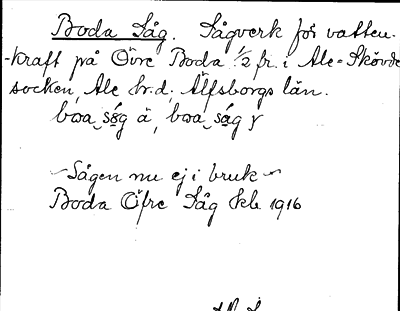 Boda Såg. Sågverk för vatten-
-kraft på Övre Boda 1/2 fr. i Ale-Skövde
socken, Ale h:d, Älfsborgs län.
Sågen nu ej i bruk
Boda Öfre Såg Ekb. 1916